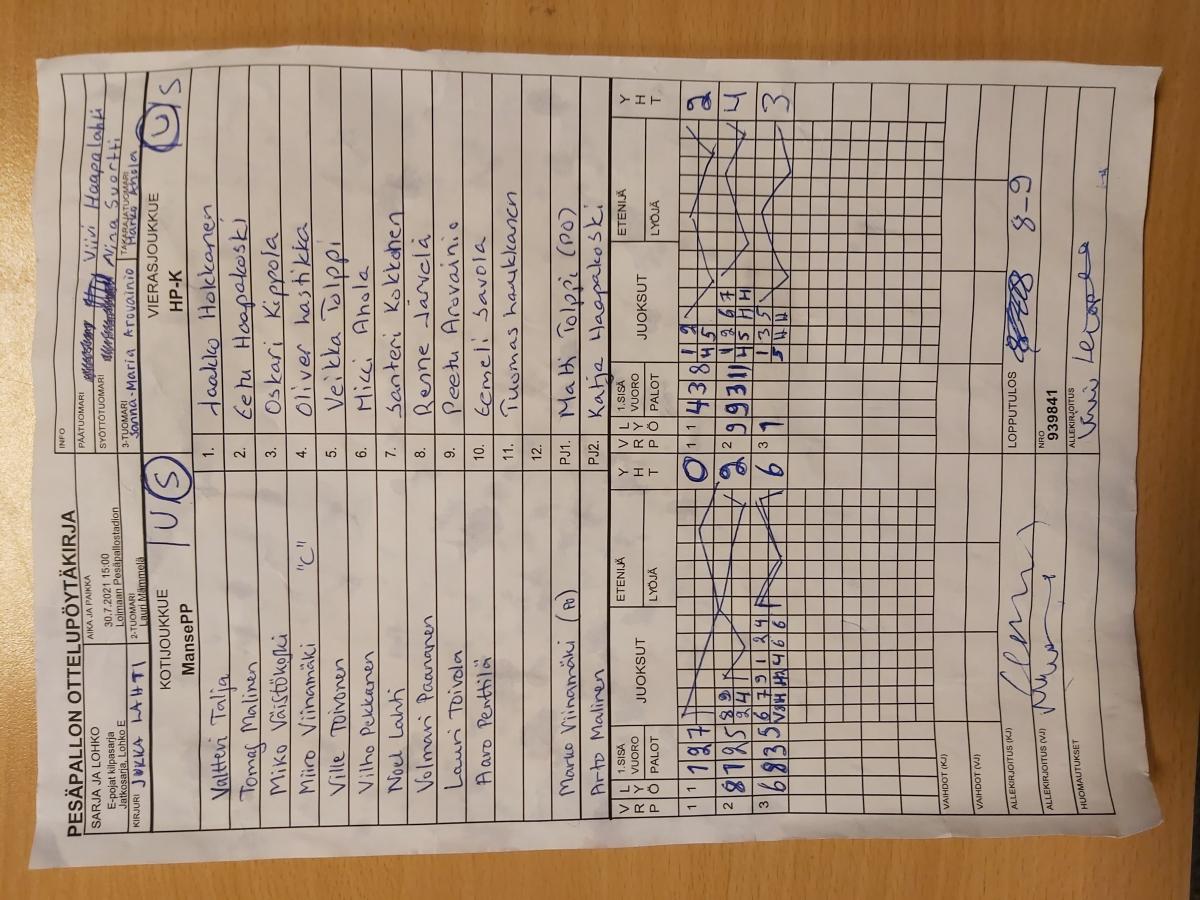 PESÄPALLON OTTELUPÖYTÄKIRJA
SARJA JA LOHKO
E-pojat kilpasarja
Jatkosarja, Lohko E
AIKA JA PAIKKA
30.7.2021 15:00
Loimaan Pesäpallostadion
INFO
PÄÄTUOMARI Viivi Haapalahti
SYÖTTÖTUOMARI Nina Suortti
KIRJURI JUKKA LAHTI
2-TUOMARI
Lauri Mämmelä
3-TUOMARI
Sanna-Maria Arovainio
TAKARAJATUOMARI
Marko Ahola
KOTIJOUKKUE
MansePP
U/S
VIERASJOUKKUE
HP-K
U/S
Valtteri Talja
1. Jaakko Hokkanen
Tomas Malinen
2. Eetu Haapakoski
Miko Väistökoski
3. Oskari Kippola
Miiro Viinamäki "C"
4. Oliver Lastikka
Ville Toivonen
5. Veikka Tolppi
Vilho Pekkanen
6. Mici Ahola
Noel Lahti
7. Santeri Kokkonen
Volmari Paananen
8. Renne Järvelä
Lauri Toivola
9. Peetu Arovainio
Aaro Penttilä
10. Eemeli Savola
11. Tuomas Laukkanen
12.
Marko Viinamäki (PO)
PJ1. Matti Tolppi (PO)
Arto Malinen
PJ2. Katja Haapakoski
V R L Y P Ö 1.SISÄ VUORO PALOT JUOKSUT ETENIJÄ LYÖJÄ Y H T
V R L Y P Ö 1.SISÄ VUORO PALOT JUOKSUT ETENIJÄ LYÖJÄ Y H T
1 1 1 2 7 0
1 1 4 3 8 1 2 2
4 5
2 8 7 2 5 8 9 2
2 4
2 9 9 3 11 1 2 6 7 4
4 5 H H
3 6 8 3 5 6 7 9 1 2 4 6
3 1 1 3 5 3
5 H H
VAIHDOT (KJ)
VAIHDOT (VJ)
ALLEKIRJOITUS (KJ)
LOPPUTULOS 8-9
ALLEKIRJOITUS (VJ)
NRO
939841
HUOMAUTUKSET
ALLEKIRJOITUS